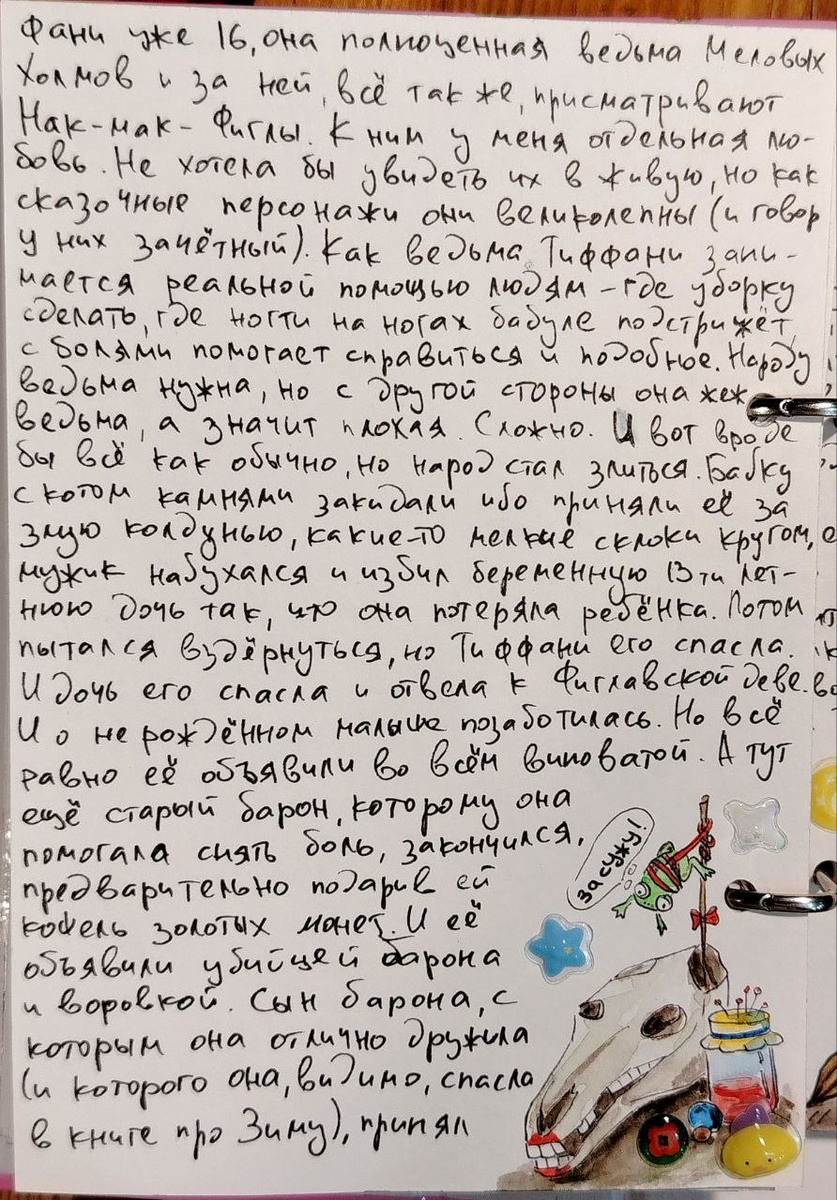 Фани уже 16, она полноценная ведьма Меловых
Холмов и за ней, всё так же, присматривают
Нак-мак-Фиглы. К ним у меня отдельная лю-
бовь. Не хотела бы увидеть их в живую, но как
сказочные персонажи они великолепны (и говор
у них зачётный). Как ведьма Тиффани зани-
мается реальной помощью людям – где уборку
сделать, где ногти на ногах бабуле подстрижёт,
с болями помогает справиться и подобное. Народу
ведьма нужна, но с другой стороны она жеж
ведьма, а значит плохая. Сложно. И вот вроде
бы всё как обычно, но народ стал злиться. Бабку
с котом камнями закидали ибо приняли её за
злую колдунью, какие-то мелкие склоки кругом,
мужик набухался и избил беременную 13ти лет-
нюю дочь так, что она потеряла ребёнка. Потом
пытался вздёрнуться, но Тиффани его спасла.
И дочь его спасла и отвела к Фиглавской деве.
И о не рождённом малыше позаботилась. Но всё
равно её объявили во всём виноватой. А тут
ещё старый барон, которому она
помогала снять боль, закончился,
предварительно подарив ей
кофель золотых монет. И её
объявили убийцей барона
и воровкой. Сын барона, с
которым она отлично дружила
(и которого она, видимо, спасла
в книге про Зиму), принял
засужу!